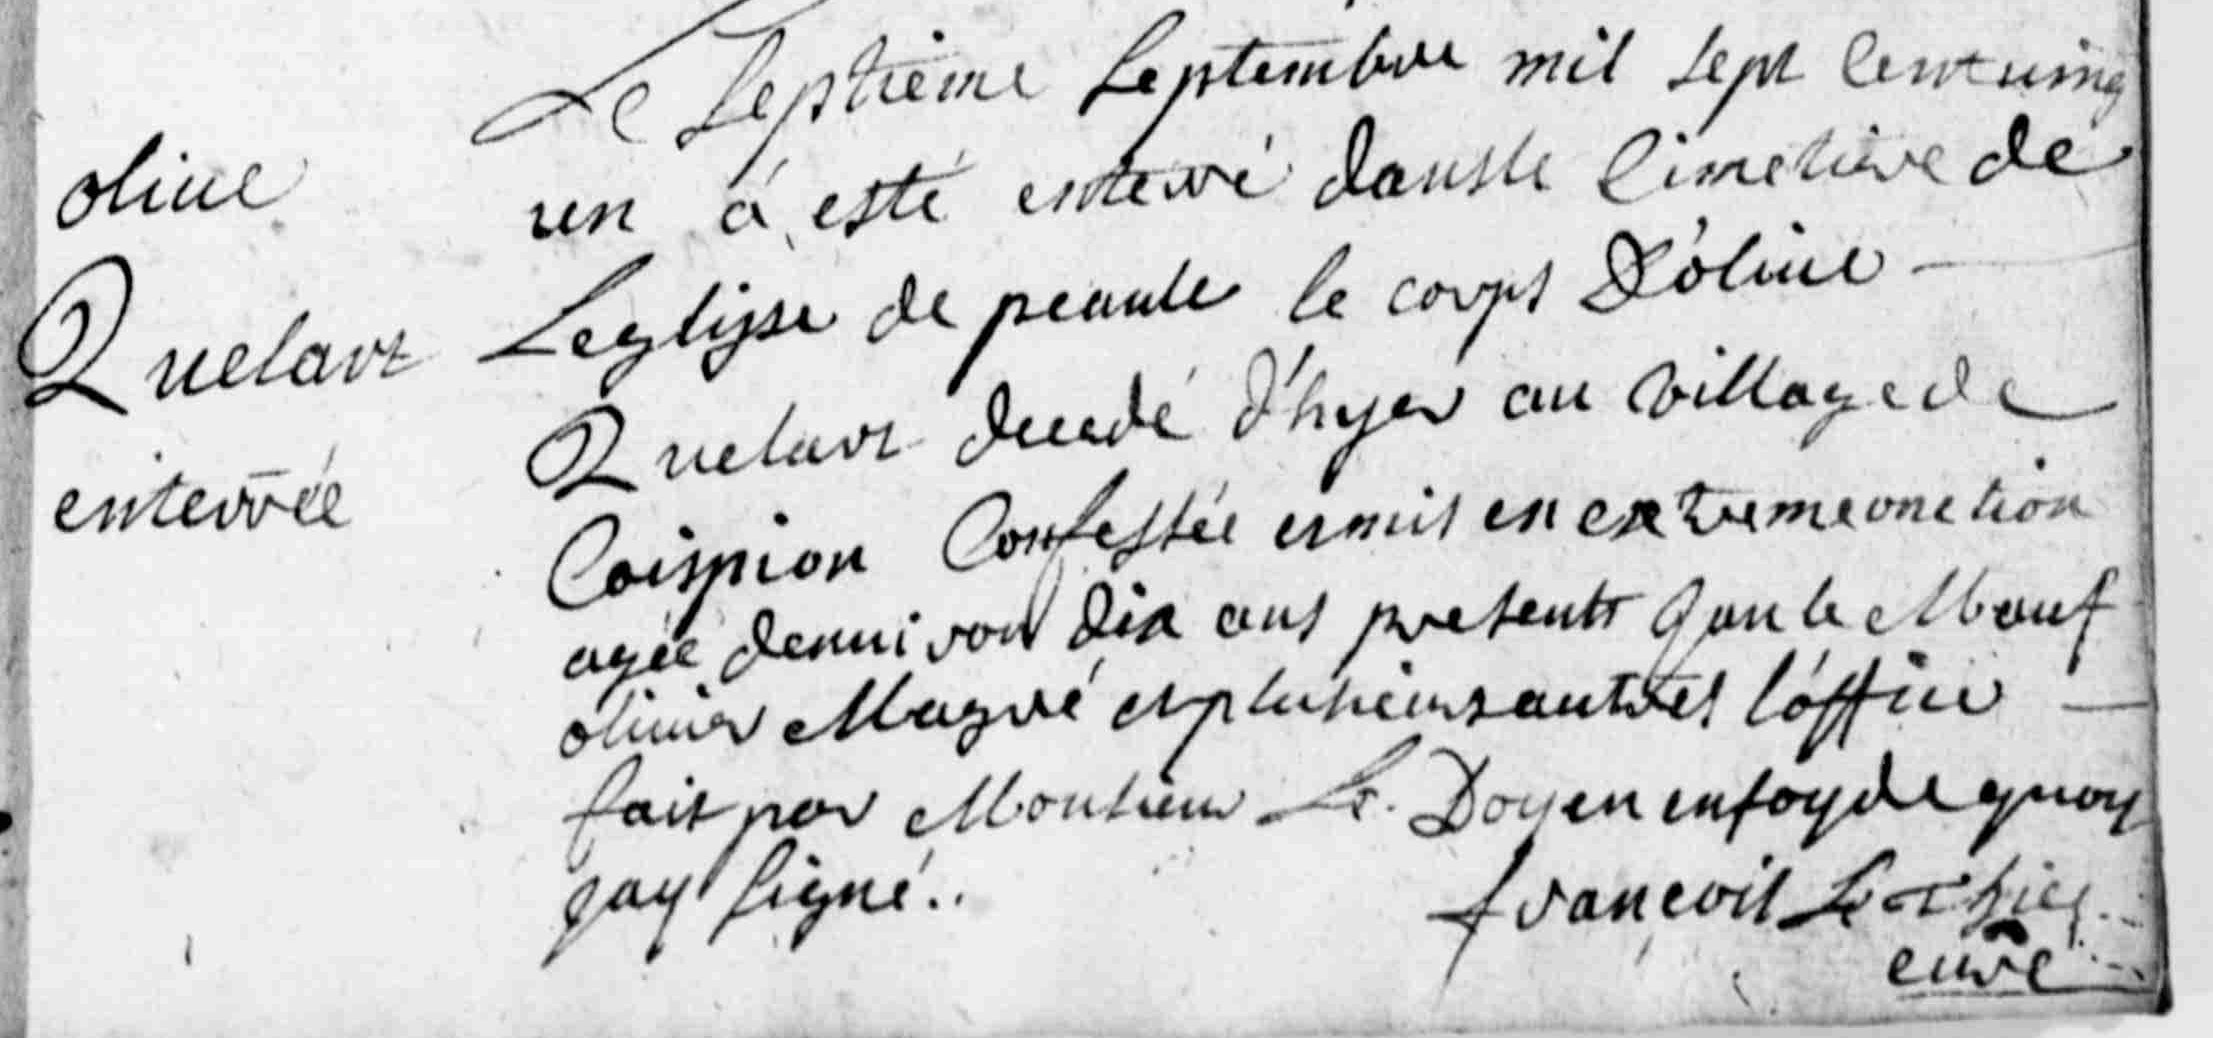 olive
Quelart
enterrée
Le septieme septembre mil sept cent ving
un á esté enterré dans le cimetiere de
Leglisse de peaule le corps D'olive
Quelart decedé d'hyer au village de
Coispion Confessée et mis en extreme onction
agée d'environ dix ans presents Jan le Mauf
olivier Magré et plusieurs autres l'office
fait par Monsieur Le Doyen en foy de quoy
jay signé..
françois Le Thiec
curé